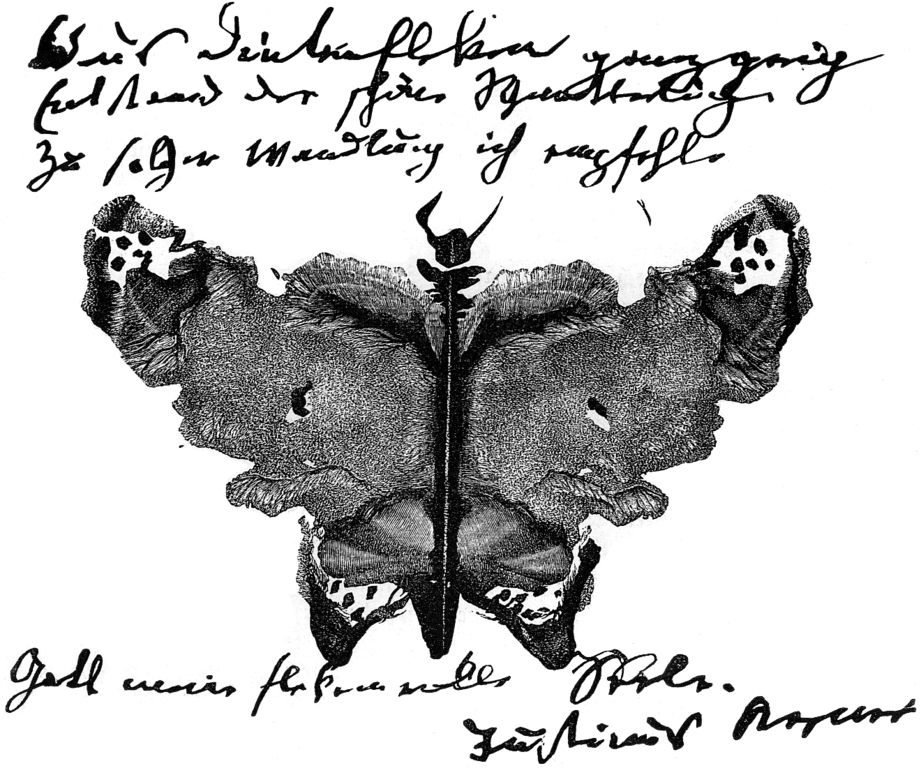 Aus Dintenfleken ganz gering
Entstand der schöne Schmetterling.
Zu solcher Wandlung ich empfehle
Gott meine flekenvolle Seele.
Justinus Kerner